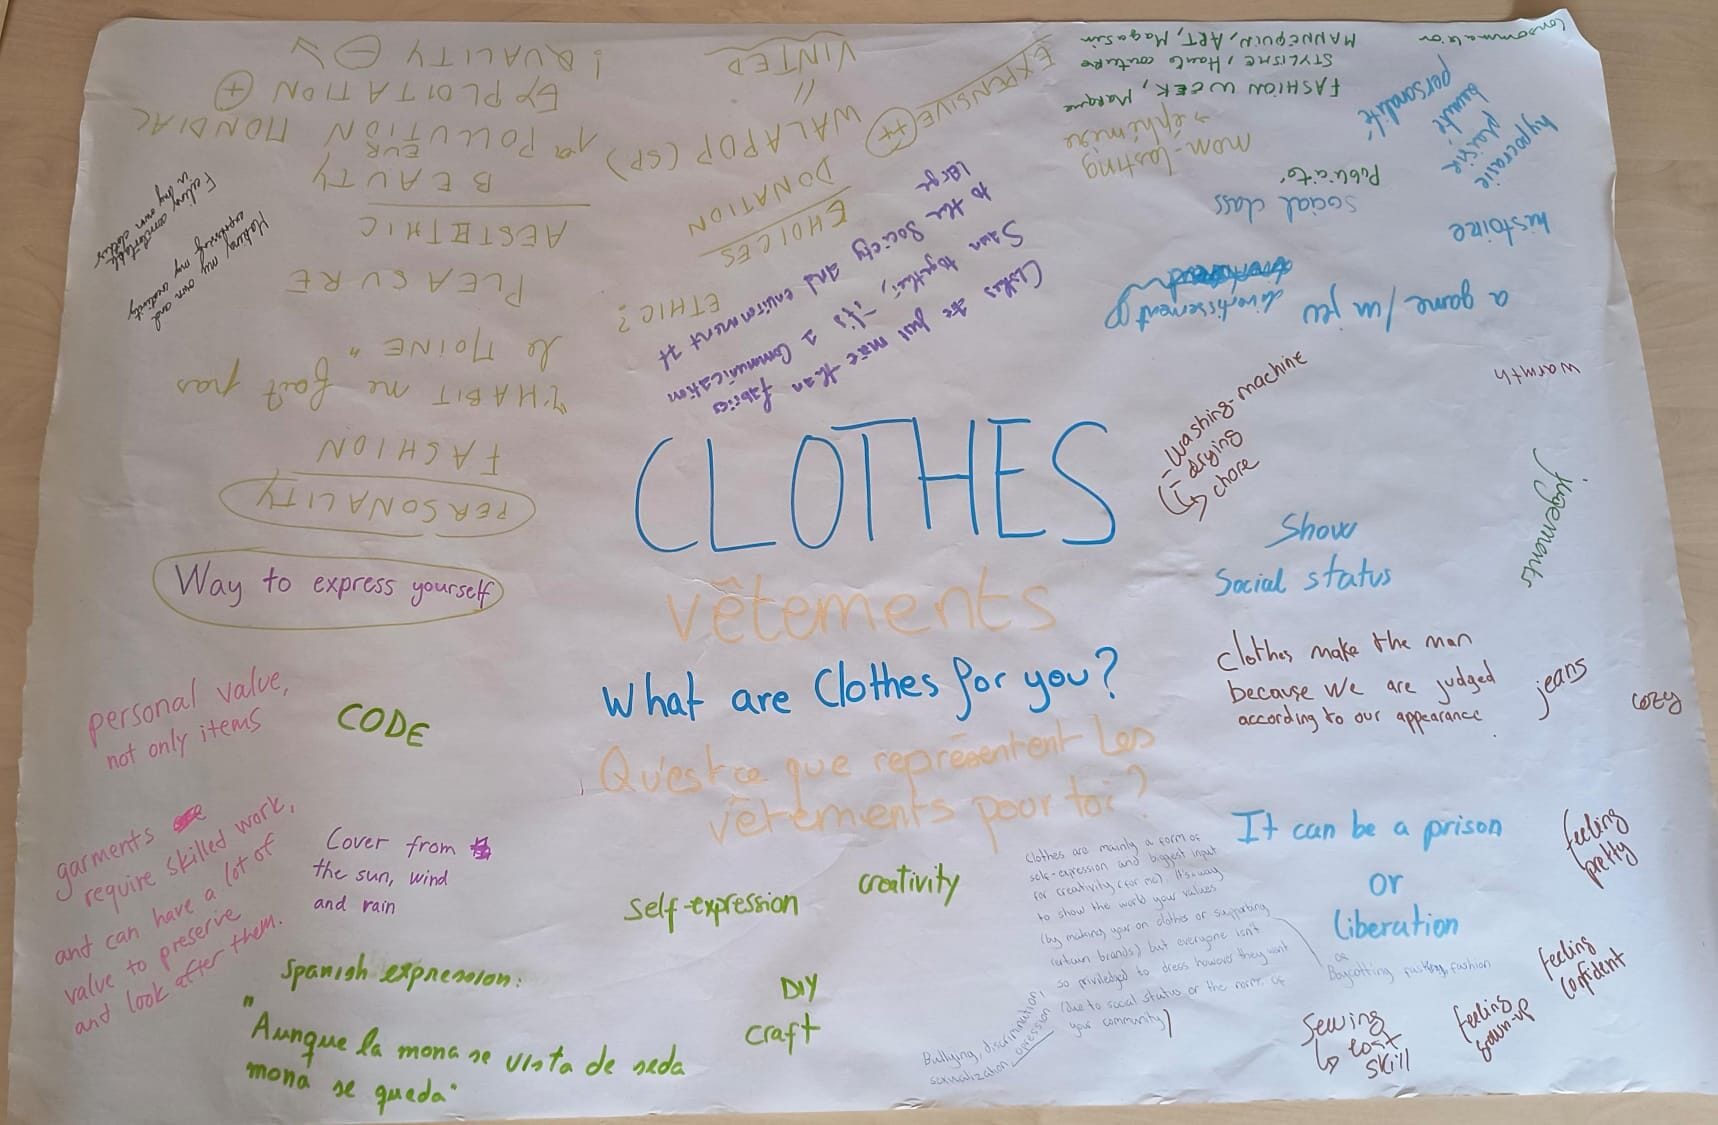 CLOTHES
vêtements
What are Clothes for you?
Qu'est ce que représentent Les
vêtements pour toi?
- Washing-machine
- drying
↳ chore
Show
Social status
jugements
warmth
Clothes make the man
because we are judged
according to our appearance
jeans
cozy
It can be a prison
or
liberation
feeling
pretty
feeling
confident
feeling
grown-up
Sewing
↳ lost
skill
Clothes are mainly a form of
self-expression and biggest input
for creativity (for me) It's a way
to show the world your values
(by making your own clothes or supporting
certain brands) but everyone isn't
so priviledged to dress however they want
(due to social status or the norms of
your community)
or
Boycotting fashion
Bullying, discrimination,
sexualization, opression
creativity
self-expression
DIY
craft
Spanish expression:
"Aunque la mona se vista de seda
mona se queda"
Cover from
the sun, wind
and rain
CODE
personal value,
not only items
garments
require skilled work,
and can have a lot of
value to preserve
and look after them.
Way to express yourself
PERSONALITY
FASHION
"L'HABIT ne fait pas
le MOINE"
PLEASURE
AESTHETHIC
BEAUTY
1er POLLUTION MONDIAL
EUR
EXPLOITATION +
! QUALITY -
Making my own and
expressing my creativity
Feeling comfortable
in my own clothes
Clothes are just more than fabrics
Sewn together, - It's a Communication
to the Society and environment at
large
ETHIC?
CHOICES
DONATION
WALAPOP (SP)
=
VINTED
EXPENSIVE ++
non-lasting
→ éphémère
FASHION WEEK, Marque
STYLISME, Haute couture
MANNEQUIN, ART, Magasin
Consommation
Publicité
social class
hypocrisie
plaisir
beauté
personalité
histoire
a game / un jeu
divertissement